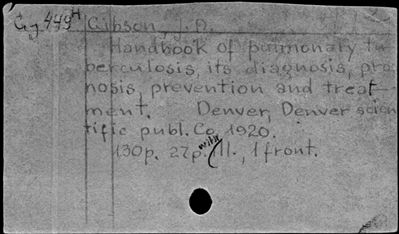 Gibson, J. D.
Handbook of pulmonary tu
berculosis, its diagnosis, prog
nosis, prevention and treat-
ment. Denver, Denver scien
tific publ. Co, 1920.
130p. 27p. with ill., 1 front.